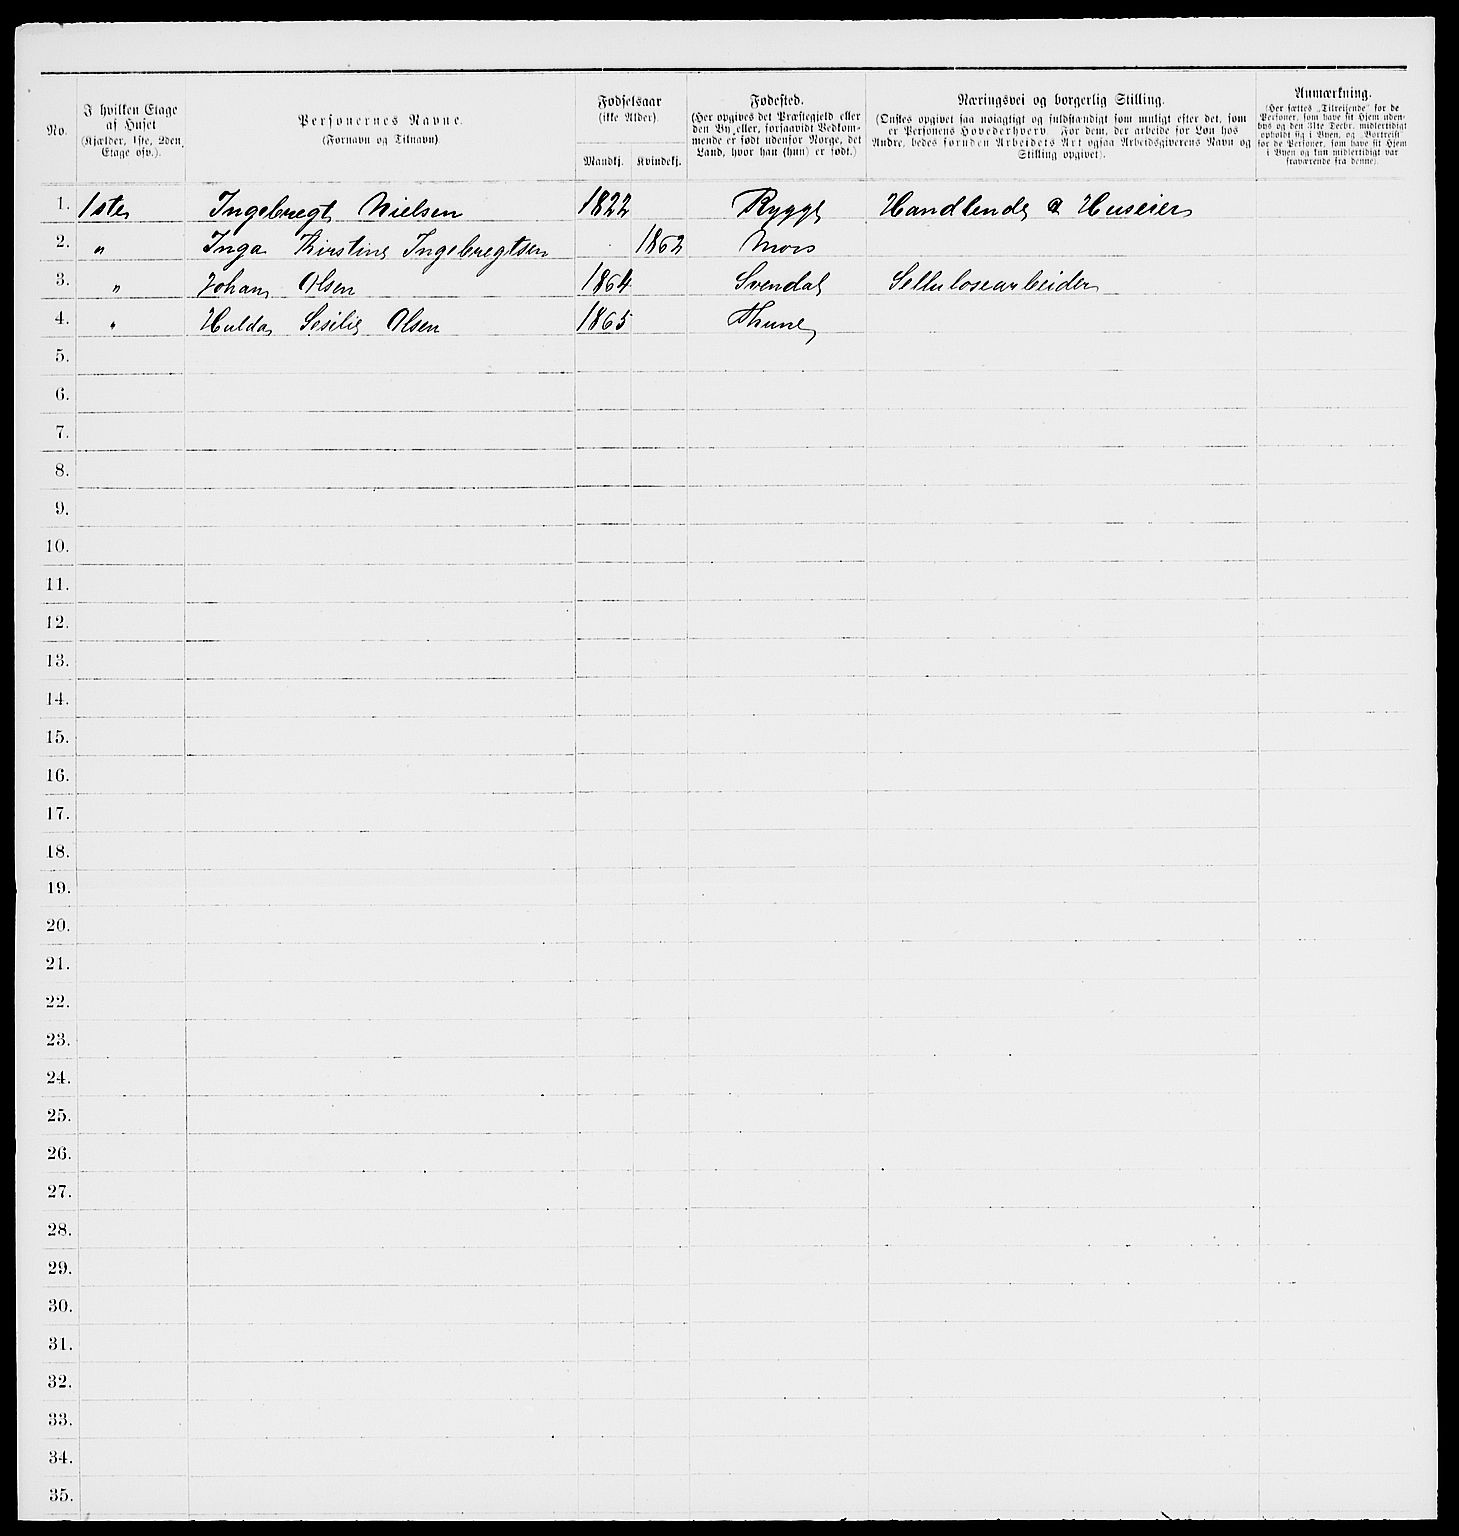 No.
I hvilken Etage
af Huset
(Kjælder, 1ste, 2den
Etage osv.).
Personernes Navne.
(Fornavn og Tilnavn)
Fødselsaar
(ikke Alder).
Mandkj. Kvindekj.
Fødested.
(Her opgives det Præstegjeld eller
den By eller, forsaavidt Vedkom-
mende er født udenfor Norge, det
Land, hvor han (hun) er født.)
Næringsvei og borgerlig Stilling.
(Ønskes opgivet saa nøiagtigt og fuldstændigt som muligt efter det, som
er Personens Hovederhverv. For dem, der arbeide for Løn hos
Andre, bedes foruden Arbeidets Art ogsaa Arbeidsgiverens Navn og
Stilling opgivet).
Anmærkning.
(Her sættes „Tilreisende“ for de
Personer, som have sit Hjem uden-
bys og den 31te Decbr. midlertidigt
opholdt sig i Byen, og „Bortreist“
for de Personer, som have sit Hjem
i Byen og kun midlertidigt var
fraværende fra denne).
1. 1ste Ingebregt Nielsen 1822 Rygge Handlende & Huseier
2. " Inga Kirstine Ingebregtsen 1862 Mors
3. " Johan Olsen 1864 Svendal Sellulosearbeider
4. " Hulda Sesilie Olsen 1865 Thune
5.
6.
7.
8.
9.
10.
11.
12.
13.
14.
15.
16.
17.
18.
19.
20.
21.
22.
23.
24.
25.
26.
27.
28.
29.
30.
31.
32.
33.
34.
35.